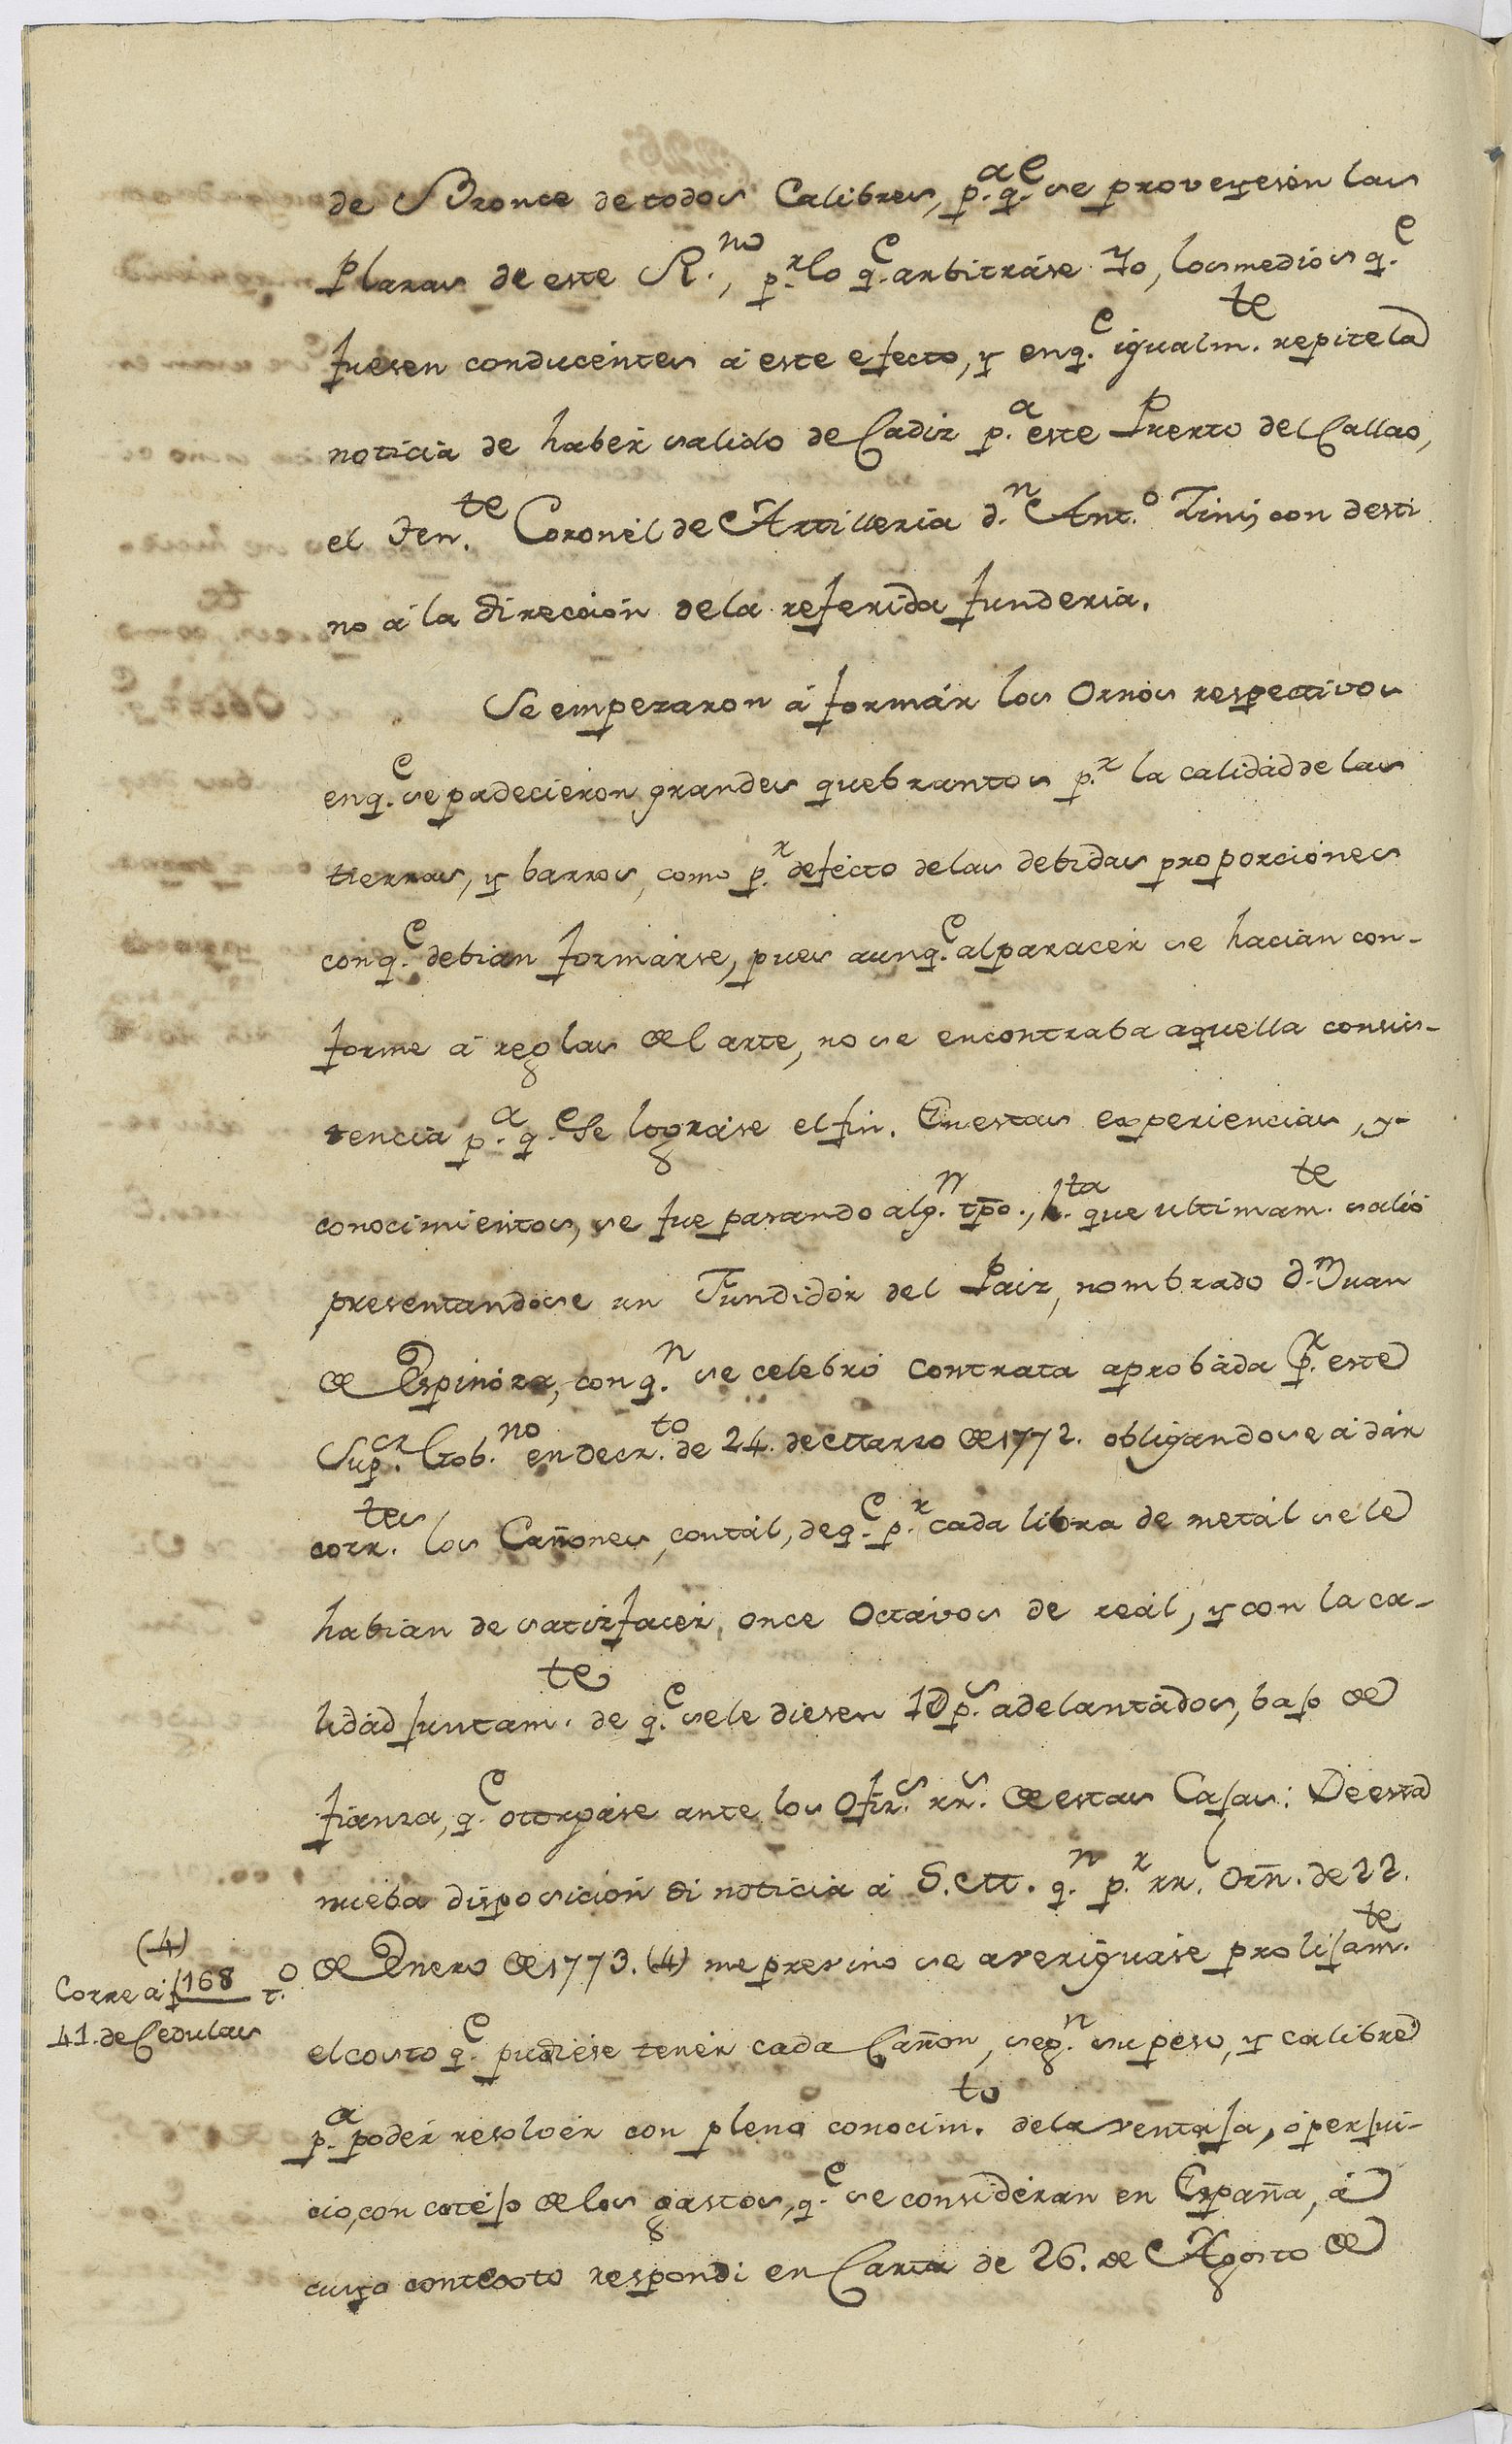 de Bronce de todos Calibres, p.a q.e se proveyesen las
Plazas de este R.no, p.r lo q.e arbitráse Yo, los medios q.e
fuesen conducentes á este efecto, y en q.e igualm.te repite la
noticia de habér salido de Cadiz p.a este Puerto del Callao,
el Ten.te Coronél de Artilleria d.n Ant.o Tini, con desti
no á la dirección de la referida funderia.
Se empezaron á formár los Ornos respectivos
en q.e se padecieron grandes quebrantos p.r la calidád de las
tierras, y barros, como p.r defécto de las debidas proporciónes
con q.e debian formárse, pues aunq.e al paracér se hacian con-
forme á reglas del arte, no se encontraba aquella consis-
tencia p.a q.e se lográse el fin. En estas experiencias, y
conocimientos, se fue pasando alg.n tpo., h.ta que ultimam.te salió
presentandose un Fundidór del Paiz, nombrado d.n Juan
de Espinóza, con q.n se celebró contrata aprobáda p.r este
Sup.or Gob.no en decr.to de 24. de Marzo de 1772. obligandose á dár
corr.tes los Cañones, con tál, de q.e p.r cada libra de metál se le
habian de satisfacér, once Octávos de reál, y con la ca-
lidád juntam.te de q.e se le diesen 1@ p.s adelantádos, bajo de
fianza, q.e otorgáse ante los Ofiz.s rr.s de estas Cajas: De esta
nueba disposición di noticia á S. M. q.n p.r rr.l Orñ. de 22.
de Enero de 1773. (4) me previno se averiguáse prolijam.te
el costo q.e pudiése tenér cada Cañon, seg.n su peso, y calibre
p.a podér resolvér con pleno conocim.to de la ventaja, ó perjui-
cio, con cotéjo de los gastos, q.e se considéran en España, á
cuyo contexto respondi en Carta de 26. de Agosto de
(4)
Corre á f 168 t.o
41. de Cedulas